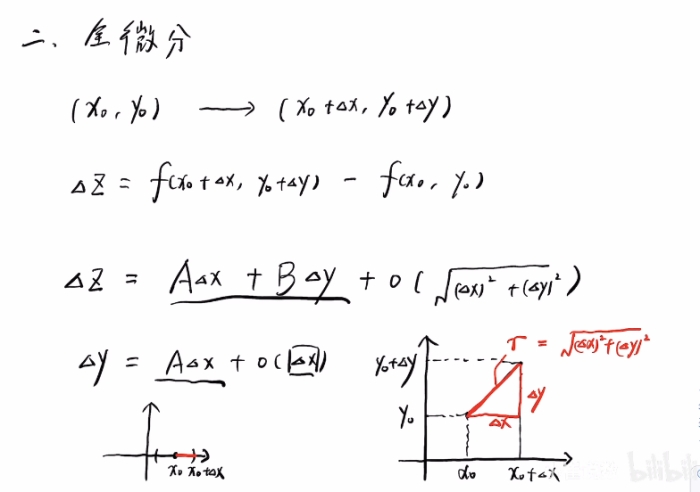 二、全微分
(x₀, y₀) ⟶ (x₀+Δx, y₀+Δy)
Δz = f(x₀+Δx, y₀+Δy) − f(x₀, y₀)
Δz = AΔx + BΔy + o(√((Δx)²+(Δy)²))
Δy = AΔx + o(|Δx|)
r = √((Δx)²+(Δy)²)
y₀+Δy
Δy
y₀
Δx
x₀ x₀+Δx
x₀ x₀+Δx
bilibili